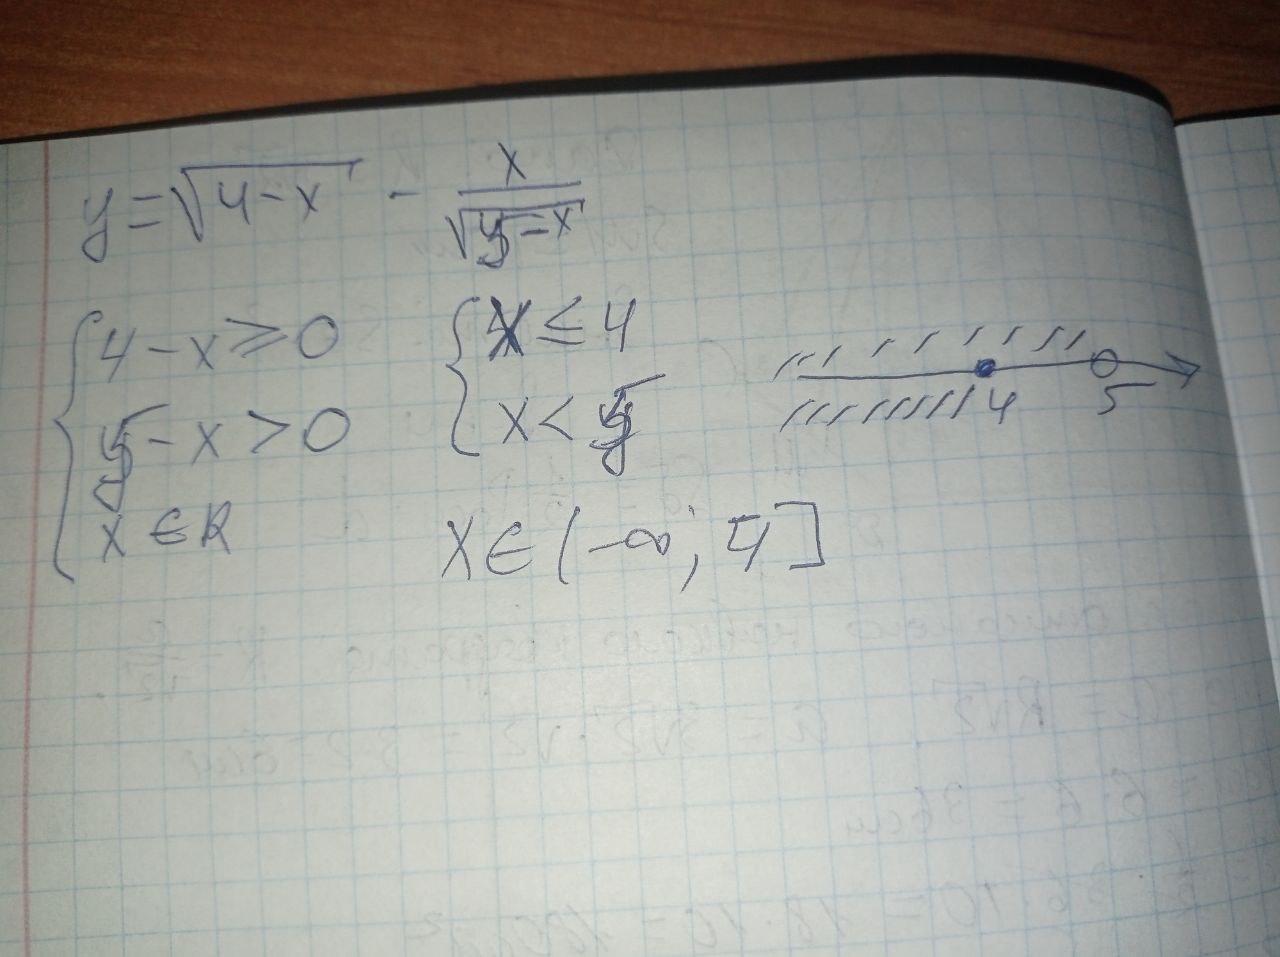 y = √(4-x) - x/√(5-x)
{ 4-x ≥ 0
5-x > 0
x ∈ R
{ x ≤ 4
x < 5
4 5
x ∈ (-∞; 4]